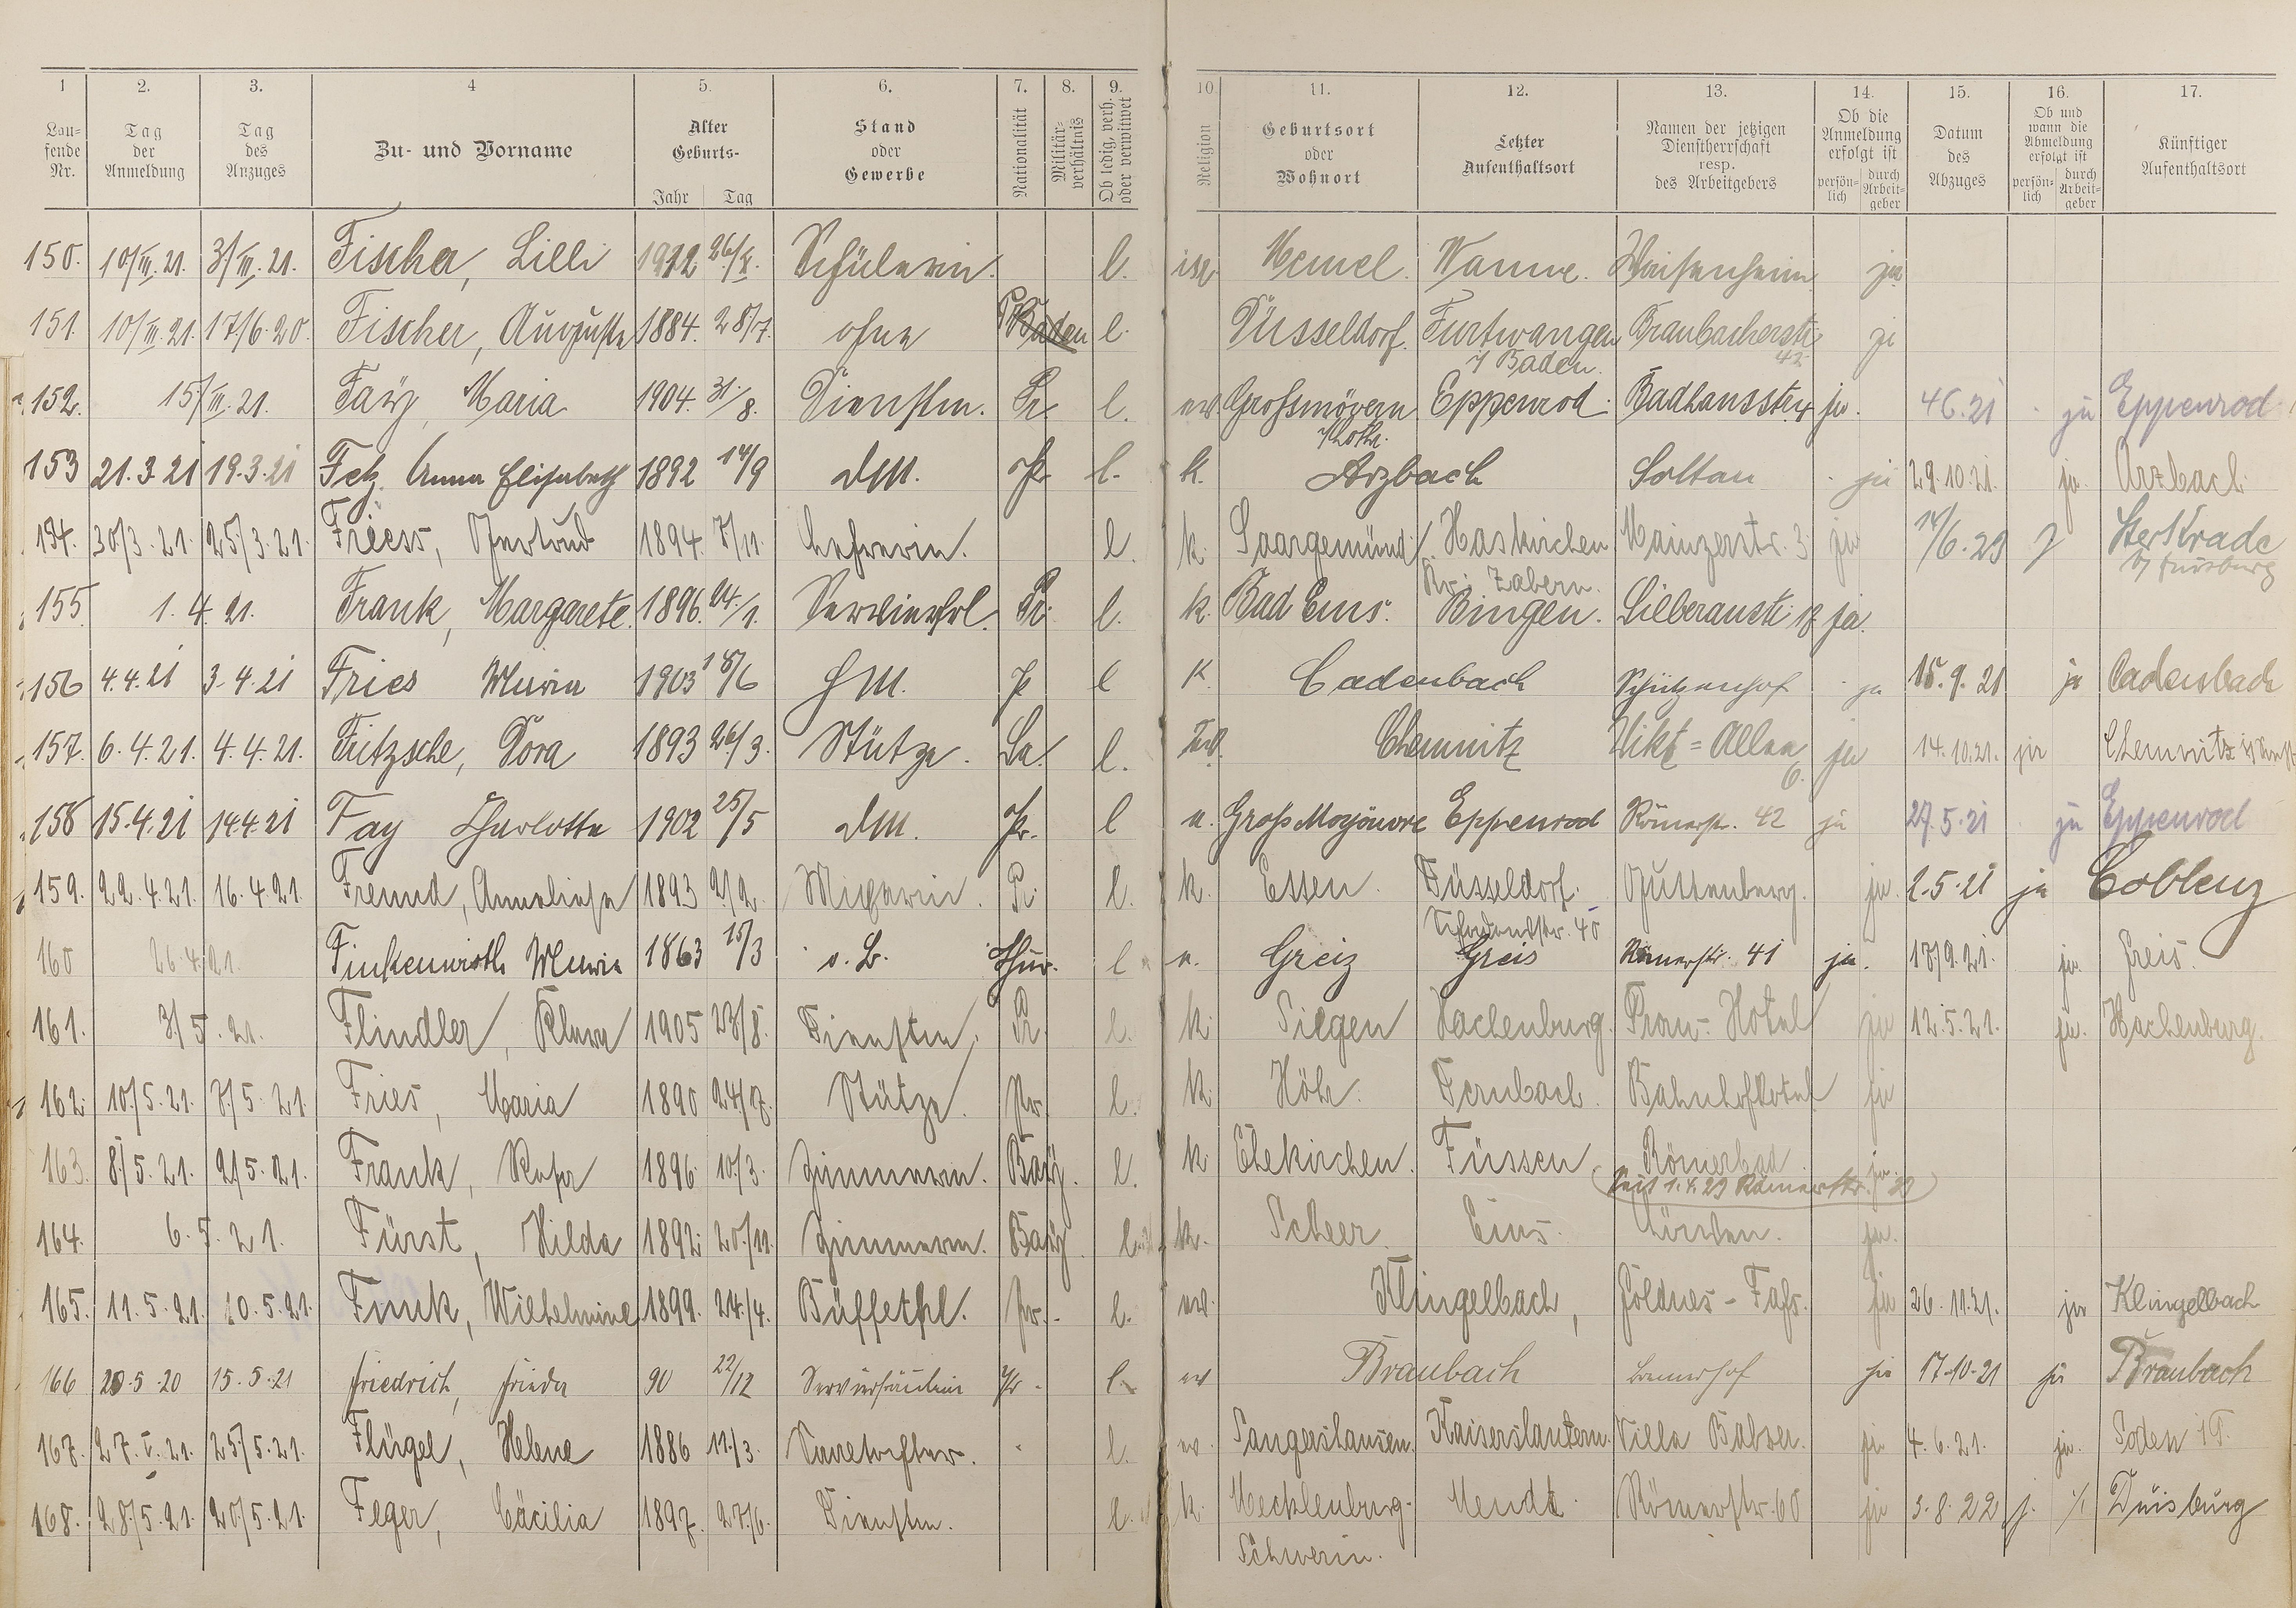 1 2. 3. 4 5. 6. 7. 8. 9. 10. 11. 12. 13. 14. 15. 16. 17.
Lau-fende Nr. Tag der Anmeldung Tag des Anzuges Zu- und Vorname Alter Geburts- Jahr Tag Stand oder Gewerbe Nationalität Militär-verhältnis Ob ledig, verh. oder verwitwet Religion Geburtsort oder Wohnort Letzter Aufenthaltsort Namen der jetzigen Dienstherrschaft resp. des Arbeitgebers Ob die Anmeldung erfolgt ist persön-lich durch Arbeit-geber Datum des Abzuges Ob und wann die Abmeldung erfolgt ist persön-lich durch Arbeit-geber Künftiger Aufenthaltsort
150. 10/III.21. 3/III.21. Fischer, Lilli 1912 26/X. Schülerin. l. isr Memel. Wanne. Waisenheim ja
151. 10/III.21. 17/6.20. Fischer, Auguste 1884. 28/7. ohne Baden l. Düsseldorf. Furtwangen Braubacherstr. ja
i/ Baden. 42
152. 15/III.21. Faÿ, Maria 1904. 31/8. Dienstm. Pr. l. ev. Grossmövern Eppenrod. Badhausstr. ja. 4.6.21 ja Eppenrod
i/Lothr.
153 21.3.21 19.3.21 Fetz Anna Elisabeth 1892 14/9 DM. Pr l. k. Arzbach Soltau ja 29.10.21. ja. Arzbach
154. 30/3.21. 25/3.21. Friess, Gertrud 1894. 7/11. Lehrerin. l. k. Saargemünd Haskirchen Mainzerstr. 3 ja 14/6.29 J Sterkrade
Kr. Zabern. b/ Duisburg
155 1.4.21. Frank, Margarete. 1896. 24./1. Servierfrl. Pr. l. k. Bad Ems. Bingen. Silberaustr. 18 ja.
156 4.4.21 3.4.21 Fries Maria 1903 18/6 HM. P l K. Cadenbach Schützenhof ja 15.9.21 ja Cadenbach
157. 6.4.21. 4.4.21. Fritzsche, Dora 1893 26/3. Stütze. Sa. l. Chemnitz Vikt=Allee ja 14.10.21. ja Chemnitz
6.
158 15.4.21 14.4.21 Fay Charlotte 1902 25/5 DM. Pr. l e. Gross Moyeuvre Eppenrod Römerstr. 42 ja 27.5.21 ja Eppenrod
159. 22.4.21. 16.4.21. Freund, Anneliese 1893 2/2. Pr. l. k. Essen. Düsseldorf. Guttenberg. ja. 2.5.21 ja Coblenz
160 26.4.21. Finkenwirth Maria 1863 15/3 o. B. Thür. l e. Greiz Greis Römerstr. 41 ja. 17/9.21. ja. Greis.
161. 3/5.21. Flindler, Klara 1905 23/8. Dienstm. Pr l. k. Siegen Hachenburg. Prau-Hotel ja 12.5.21. ja. Hachenburg.
162. 10/5.21. 7./5.21. Fries, Maria 1890 24/7. Stütze. Pr. l. k. Höhr. Dernbach. Bahnhofhotel ja
163. 8/5.21. 2/5.21. Frank, Rosa 1896 10/3. Zimmerm. Baÿ. l. k Ehekirchen. Füssen Römerbad ja
(Seit 1.4.29 Römerstr. 29)
164. 6.5.21. Fürst, Hilda 1892. 20./11. Zimmerm. Baÿ. l. k. Scheer. Ems. ja.
165. 11.5.21. 10.5.21. Funk, Wilhelmine 1899. 24./4. Büffetfrl. Pr. l. ev. Klingelbach, Goldnes-Fass. ja 26.11.21. ja Klingelbach
166 20.5.20 15.5.21 Friedrich, Frieda 90 22/12 Servierfräulein Pr. l. ev Braubach ja 17.10.21 ja Braubach
167. 27.V.21. 25/5.21. Flügel, Helene 1886 11./3. l. ev. Sangershausen. Kaiserslautern. Villa Balzer. ja 4.6.21. ja. Soden i T.
168. 28./5.21. 20/5.21. Feger, Cäcilia 1897. 27/6. Dienstm. l. k. Mecklenburg- Mendt. Römerstr. 60 ja 3.8.22 j. Duisburg
Schwerin.